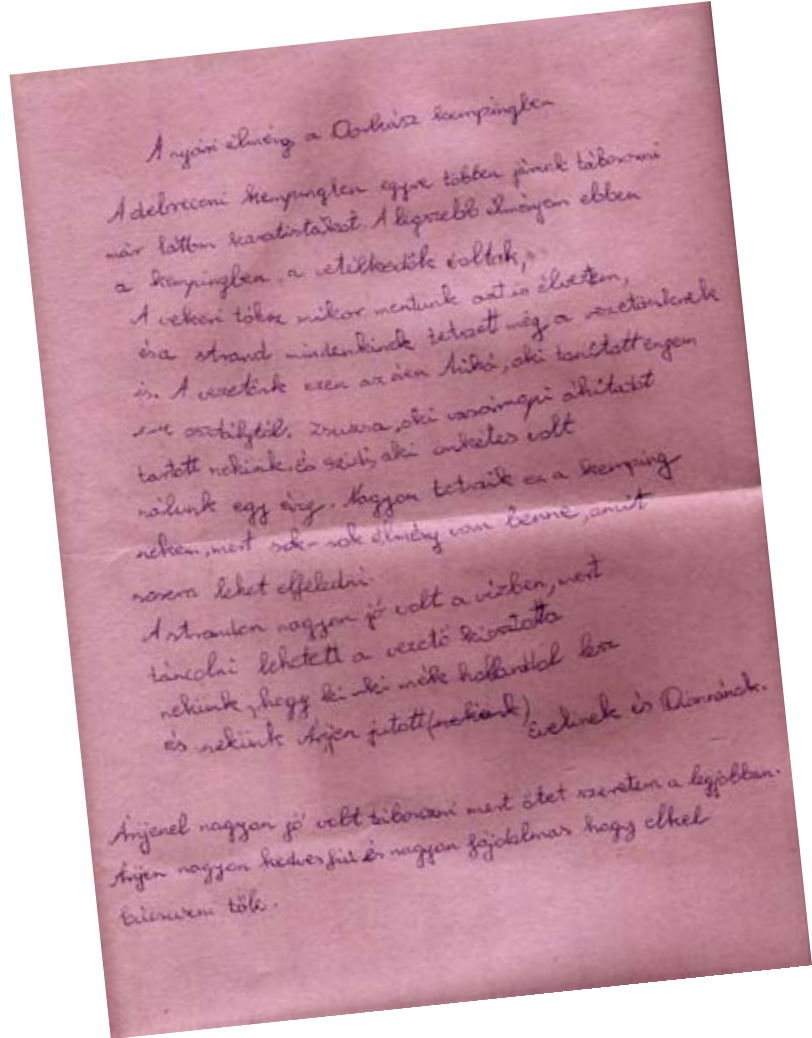 A nyári élmény a Dorkász kempingben
A debreceni kempingben egyre többen járnak táborozni
már láttam karatistákat. A legszebb élményem ebben
a kempingben a vetélkedők voltak,
A vekeri tóhoz mikor mentünk azt is élveztem,
és a strand mindenkinek tetszett még a vezetőinknek
is. A vezetőink ezen az éven Anikó, aki tanított engem
osztálytól. Zsuzsa, aki vasárnapi áhítatot
tartott nekünk, és Szidi, aki önkéntes volt
nálunk egy évig. Nagyon tetszik ez a kemping
nekem, mert sok-sok élmény van benne, amit
sosem lehet elfeledni.
A strandon nagyon jó volt a vízben, mert
táncolni lehetett a vezető kiosztotta
nekünk, hogy ki-ki mék hollanddal lesz
és nekünk Arjen jutott (nekünk)
Evelinek és Diannának.
Arjenel nagyon jó volt táborozni mert őtet szeretem a legjobban.
Arjen nagyon kedves fiú és nagyon fájdalmas hogy elkel
búcsúzni tőle.